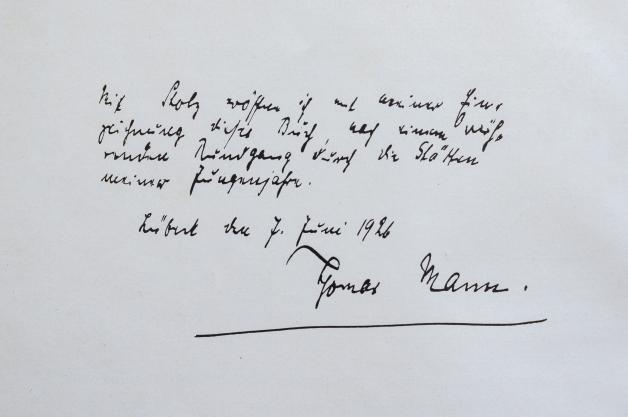 Mit Stolz eröffne ich mit meiner Ein-
zeichnung dieses Buch, nach einem rüh-
renden Rundgang durch die Stätten
meiner Jungenjahre.
Lübeck den 7. Juni 1926
Thomas Mann.